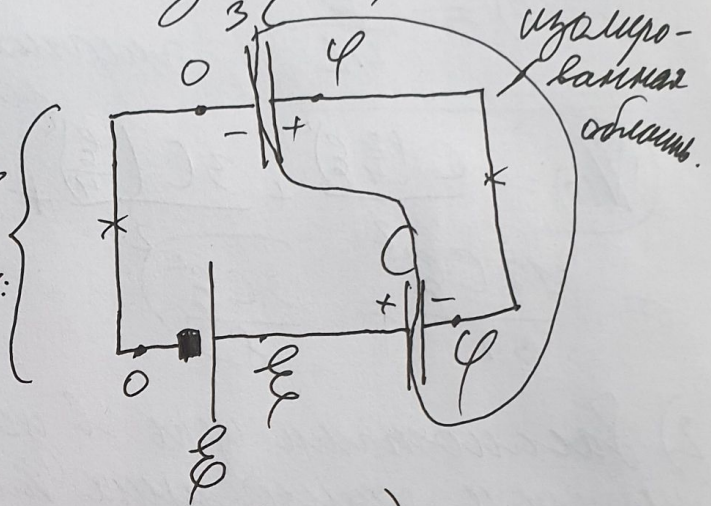 3C
изолиро-
ванная
область.
0
φ
-
+
C
+
-
0
ℰ
φ
ℰ